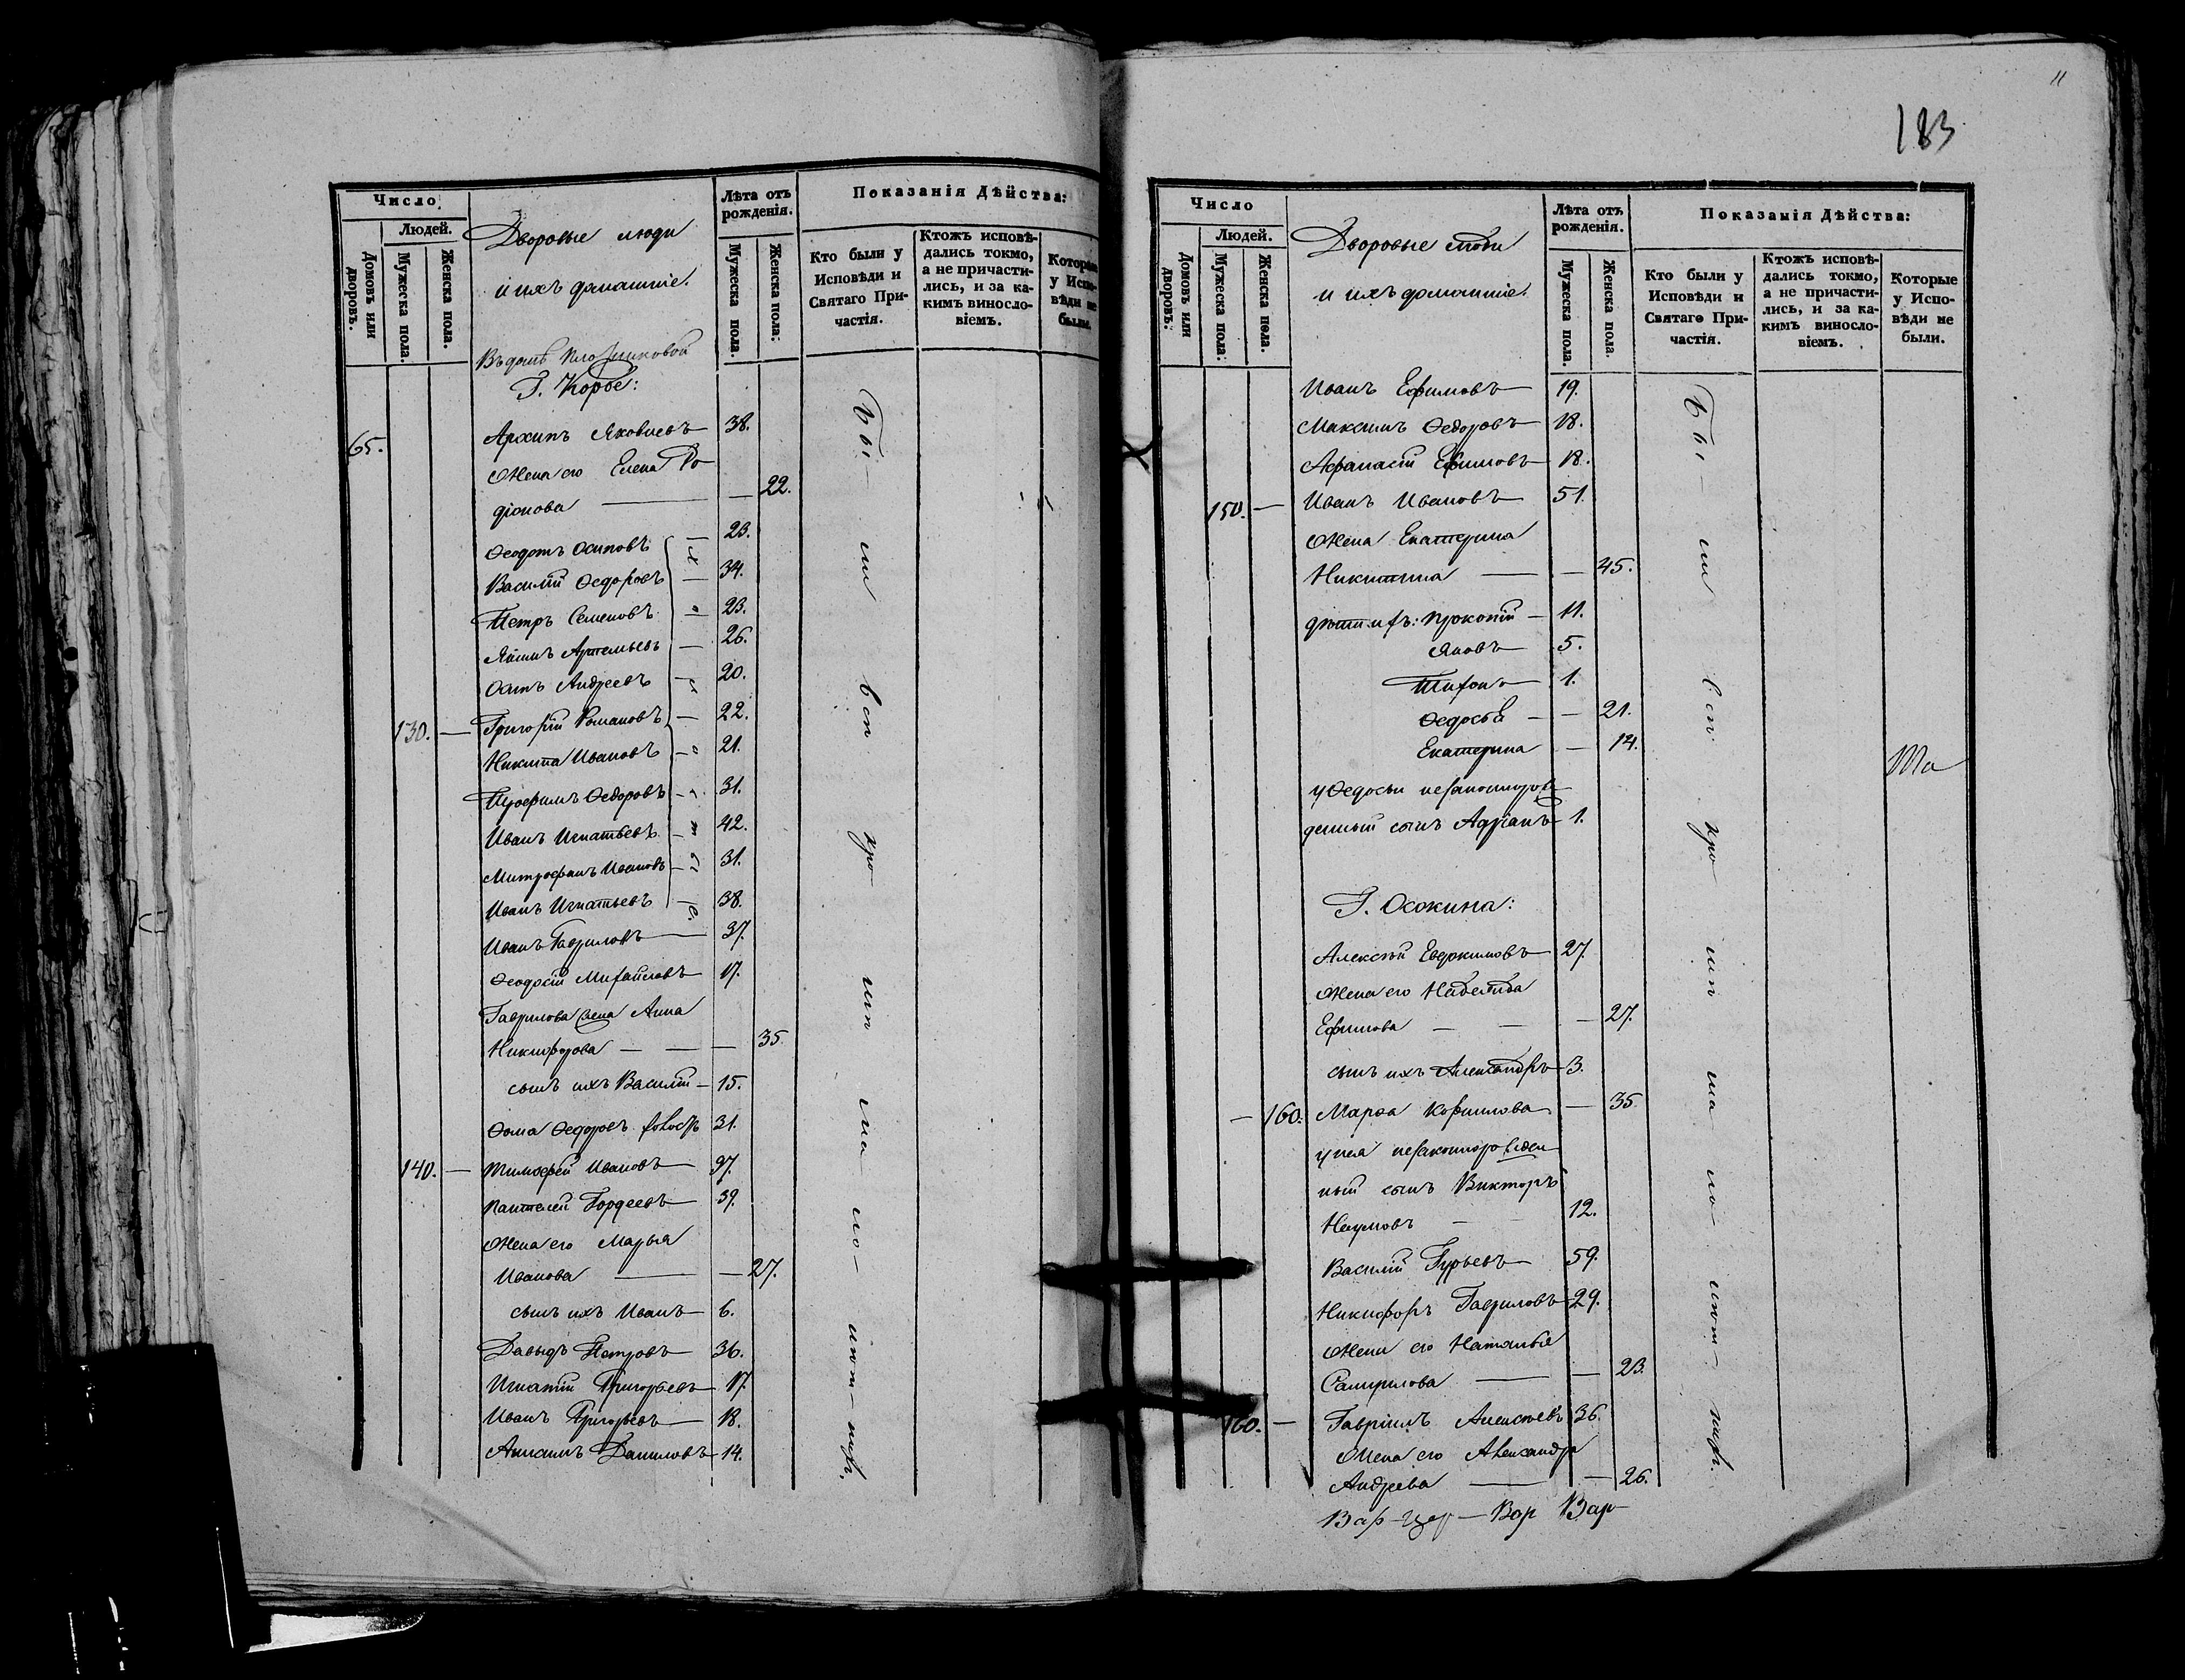 Число
Людей.
Домовъ или дворовъ.
Мужеска пола.
Женска пола.
Дворовые люди
и ихъ домашніе.
Лѣта отъ рожденія.
Мужеска пола.
Женска пола.
Показанія Дѣйства:
Кто были у Исповѣди и Святаго Причастія.
Ктожъ исповѣдались токмо, а не причастились, и за какимъ винословіемъ.
Которые у Исповѣди не были.
Въ домѣ
Г. Корбе:
65. Архипъ Яковлевъ 38.
Жена его Елена Ро
діонова — 22.
Ѳеодотъ Осиповъ 23.
Василій Ѳедоровъ — 34.
Петръ Семеновъ — 23.
Якимъ Артемьевъ — 26.
Осипъ Андреевъ 20.
130. — Григорій Романовъ — 22.
Никита Ивановъ 21.
Трофимъ Ѳедоровъ 31.
Иванъ Игнатьевъ 42.
Митрофанъ Ивановъ 31.
Иванъ Игнатьевъ 38.
Иванъ Гавриловъ — 37.
Ѳеодосій Михайловъ 17.
Гаврилова жена Анна
Никифорова — — — 35
сынъ ихъ Василій — 15.
Ѳома Ѳедоровъ холостъ 31.
140. — Тимоѳей Ивановъ 37.
Пантелей Гордеевъ 39.
Жена его Марья
Иванова — — 27.
сынъ ихъ Иванъ 6.
Давыдъ Петровъ 36.
Игнатій Григорьевъ 17.
Иванъ Григорьевъ 18.
Даниловъ 14.
11
183
Число
Людей.
Домовъ или дворовъ.
Мужеска пола.
Женска пола.
Дворовые люди
и ихъ домашніе.
Лѣта отъ рожденія.
Мужеска пола.
Женска пола.
Показанія Дѣйства:
Кто были у Исповѣди и Святаго Причастія.
Ктожъ исповѣдались токмо, а не причастились, и за какимъ винословіемъ.
Которые у Исповѣди не были.
Иванъ Ефимовъ 19.
Максимъ Ѳедоровъ 18.
Афанасій Ефимовъ 18.
150. — Иванъ Ивановъ 51.
Жена Екатерина
Никитина — — 45.
дѣти ихъ: Прокопій — 11.
Яковъ 5.
Тихонъ 1.
Ѳедосья — — 21.
Екатерина — 14.
у Ѳедосьи незаконнорож
денный сынъ Адріанъ 1.
Г. Осокина:
Алексѣй Евдокимовъ 27.
Жена его Надежда
Ефимова — — — 27.
сынъ ихъ Александръ 3.
— 160. Марѳа Корнилова — 35
у нея незаконнорожден
ный сынъ Викторъ
Наумовъ — 12.
Василій Гурьевъ 59.
Никифоръ Гавриловъ 29.
Жена его Наталья
— — 23.
160. — Гавріилъ Алексѣевъ 36.
Жена его Александра
Андреева — — 26.